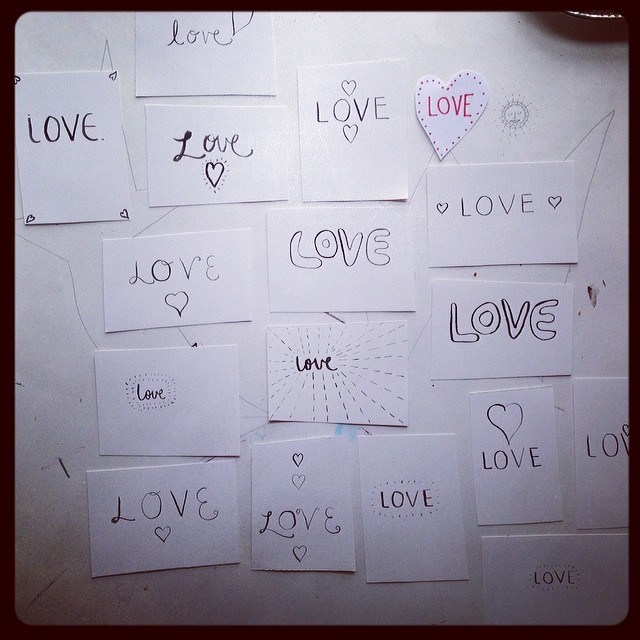 love
LOVE.
Love
LOVE
LOVE
LOVE
LOVE
LOVE
LOVE
love
love
LOVE
LOVE
LOVE
LOVE
LOVE
LOVE